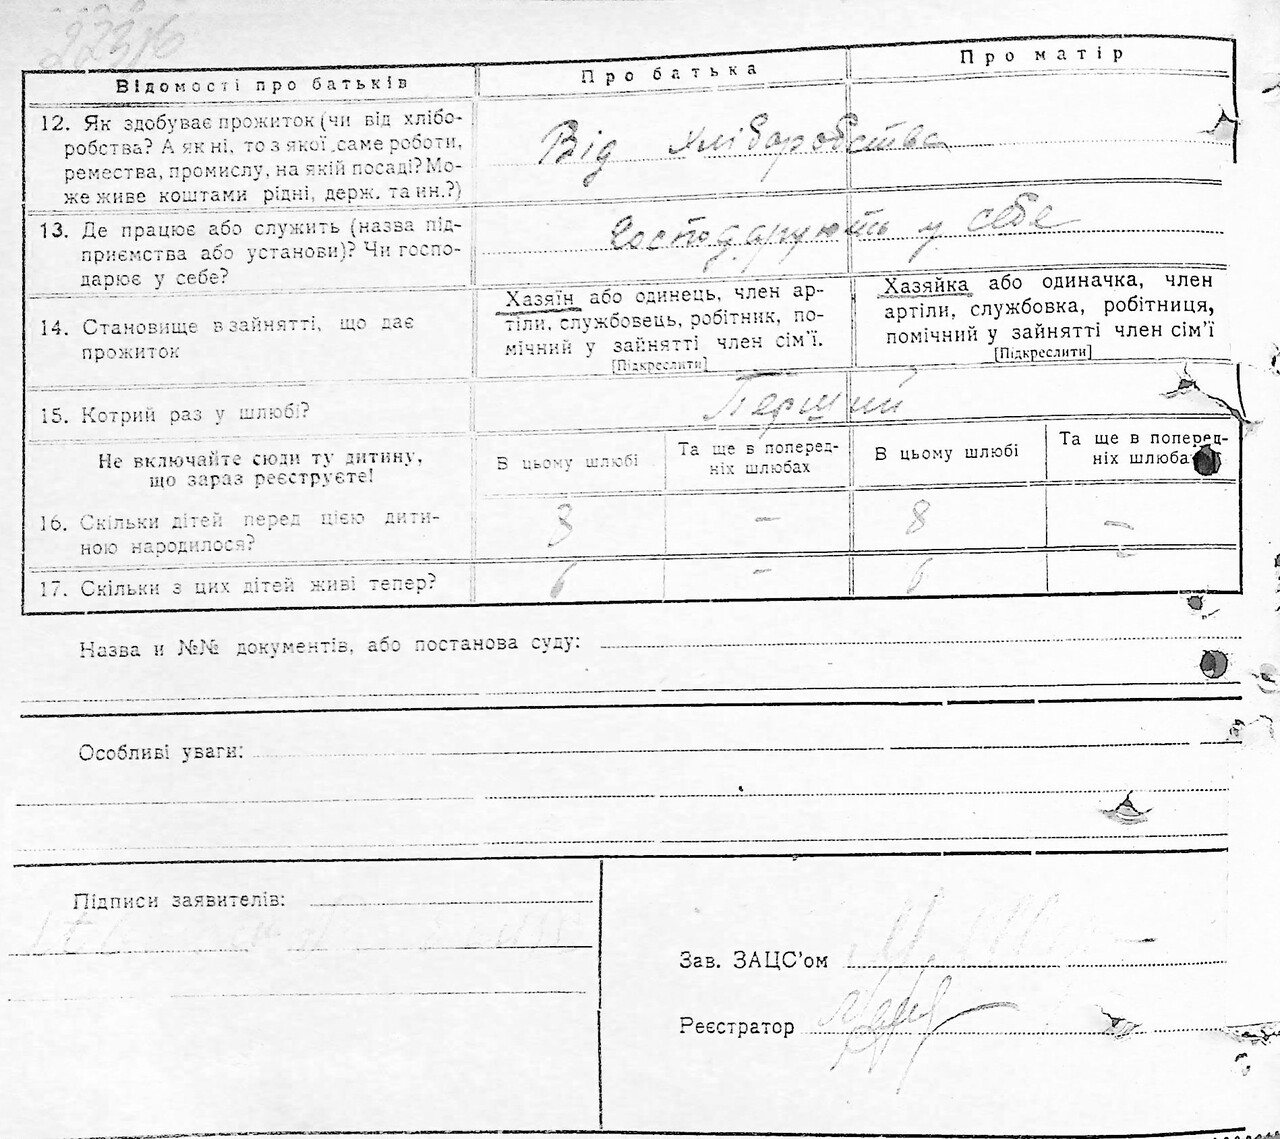 22316
Відомості про батьків
Про батька
Про матір
12. Як здобуває прожиток (чи від хлібо-
робства? А як ні, то з якої саме роботи,
ремества, промислу, на якій посаді? Мо-
же живе коштами рідні, держ. та ин.?)
Від хліборобства
13. Де працює або служить (назва під-
приємства або установи)? Чи госпо-
дарює у себе?
Господарують у себе
14. Становище в зайнятті, що дає
прожиток
Хазяїн або одинець, член ар-
тіли, службовець, робітник, по-
мічний у зайнятті член сім'ї.
[Підкреслити]
Хазяйка або одиначка, член
артіли, службовка, робітниця,
помічний у зайнятті член сім'ї
[Підкреслити]
15. Котрий раз у шлюбі?
Перший
Не включайте сюди ту дитину,
що зараз реєструєте!
В цьому шлюбі
Та ще в поперед-
ніх шлюбах
В цьому шлюбі
Та ще в поперед-
ніх шлюбах
16. Скільки дітей перед цією дити-
ною народилося?
8 – 8 –
17. Скільки з цих дітей живі тепер?
6 – 6
Назва и №№ документів, або постанова суду:
Особливі уваги:
Підписи заявителів:
Зав. ЗАЦС'ом
Реєстратор